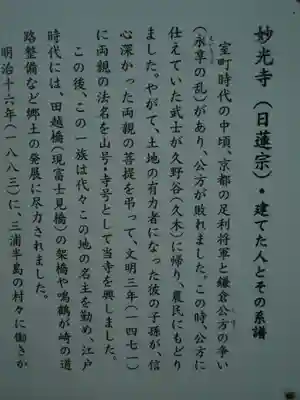 妙光寺（日蓮宗）・建てた人とその系譜
室町時代の中頃、京都の足利将軍と鎌倉公方の争い
（永享の乱）があり、公方が敗れました。この時、公方に
仕えていた武士が久野谷（久木）に帰り、農民にもどり
ました。やがて、土地の有力者になった彼の子孫が、信
心深かった両親の菩提を弔って、文明三年（一四七一）
に両親の法名を山号・寺号として当寺を興しました。
この後、この一族は代々この地の名主を勤め、江戸
時代には、田越橋（現富士見橋）の架橋や鳴鶴が崎の道
路整備など郷土の発展に尽力されました。
明治十六年（一八八三）に、三浦半島の村々に働きか